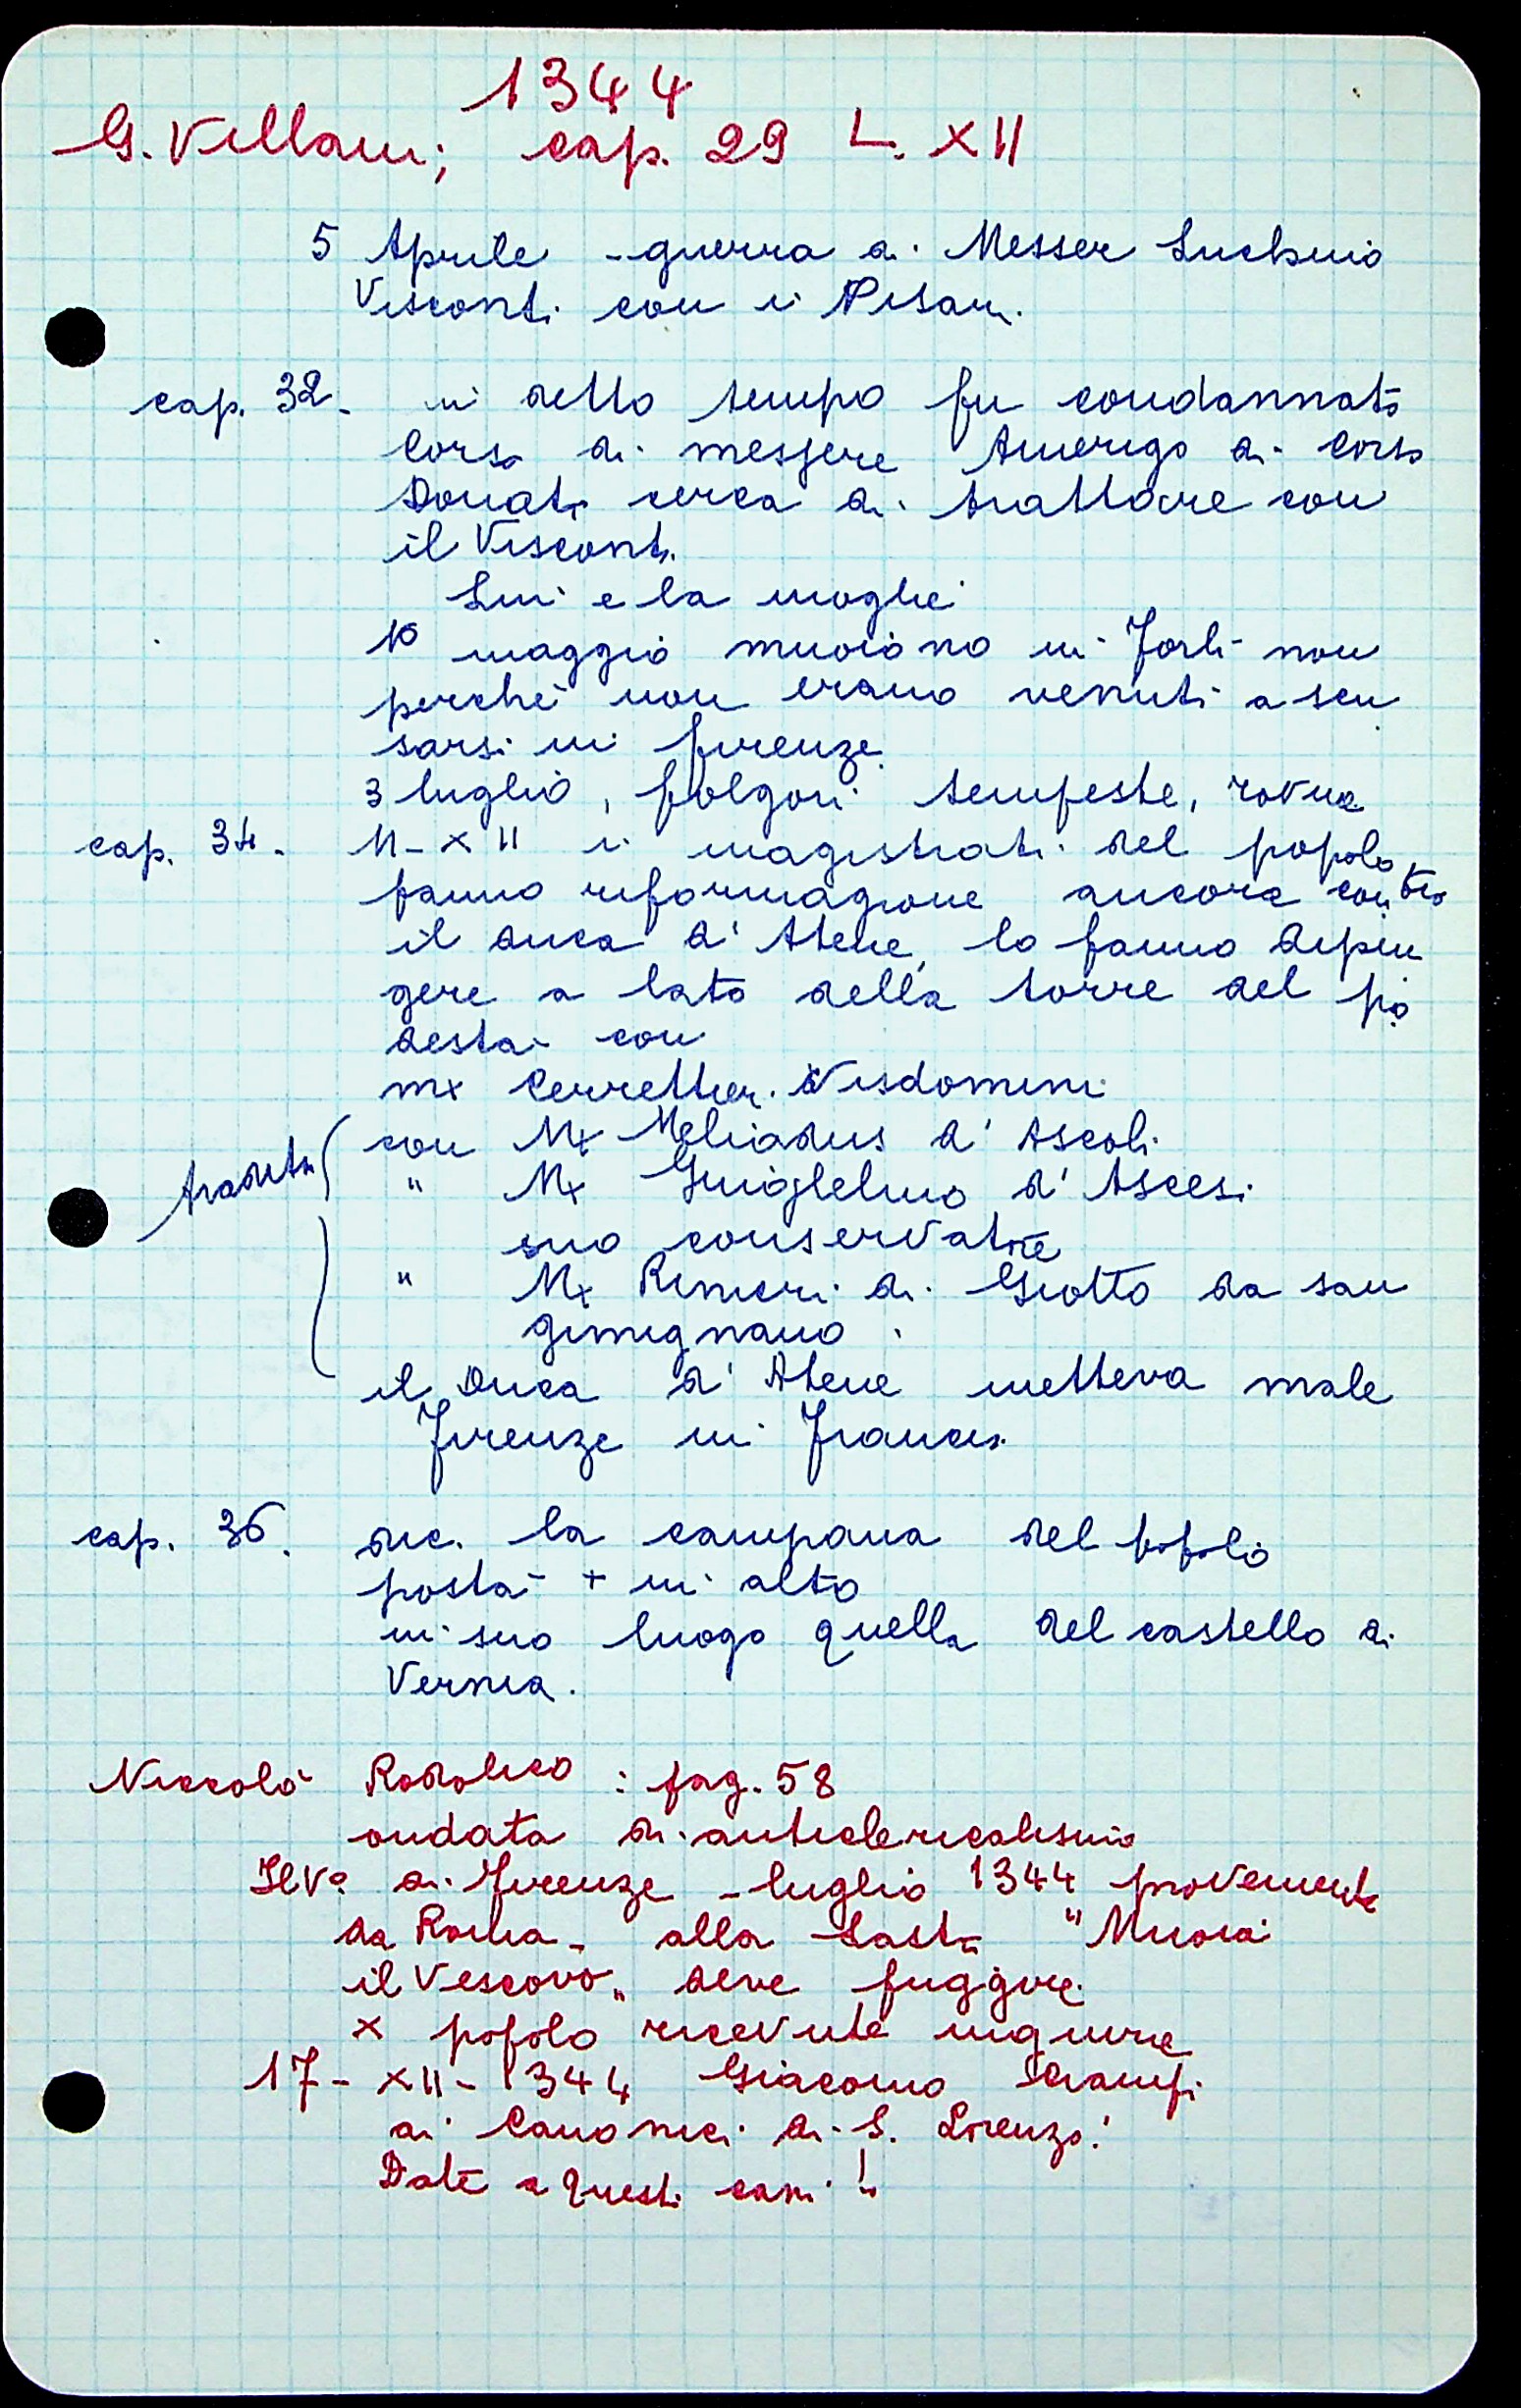 1344
G. Villani; cap. 29 L. XII
5 Aprile - guerra di Messer Luchino
Visconti con i Pisani.
cap. 32. in detto tempo fu condannato
Corso di messere Amerigo di Corso
Donati cerca di trattare con
il Visconti.
Lui e la moglie
10 maggio muoiono in Forlì non
perchè non erano venuti a scu
sarsi in firenze.
3 luglio, folgori tempeste, rovine
cap. 34. 11-XII i magistrati del popolo
fanno riformagione ancora contro
il duca d'Atene, lo fanno dipin
gere a lato della torre del po
destà con
mx Cerrettieri Visdomini
con Mx Meliadus d'Ascoli
traditori " Mx Guiglielmo d'Ascesi
suo conservatore
" Mx Rinieri di Giotto da san
gimignano.
il Duca d'Atene metteva male
Firenze in Francia.
cap. 36. dic. la campana del popolo
posta + in alto
in suo luogo quella del castello di
Vernia.
Niccolò Rodolico : pag. 58
ondata di anticlericalismo
Il Vº di Firenze - luglio 1344 proveniente
da Roma - alla Lastra "Muoia
il Vescovo" deve fuggire.
x popolo ricevute ingiurie
17-XII-1344 Giacomo
ai Canonici di S. Lorenzo!
Date a questi cani!